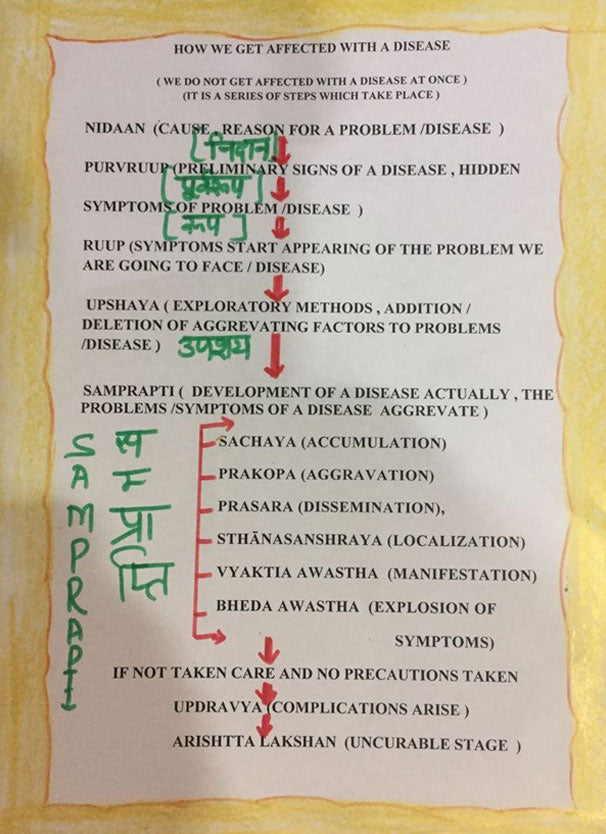 HOW WE GET AFFECTED WITH A DISEASE
( WE DO NOT GET AFFECTED WITH A DISEASE AT ONCE )
(IT IS A SERIES OF STEPS WHICH TAKE PLACE )
NIDAAN (CAUSE , REASON FOR A PROBLEM /DISEASE )
[निदान]
PURVRUUP (PRELIMINARY SIGNS OF A DISEASE , HIDDEN
[पूर्वरूप]
SYMPTOMS OF PROBLEM /DISEASE )
[रूप]
RUUP (SYMPTOMS START APPEARING OF THE PROBLEM WE
ARE GOING TO FACE / DISEASE)
UPSHAYA ( EXPLORATORY METHODS , ADDITION /
DELETION OF AGGREVATING FACTORS TO PROBLEMS
/DISEASE ) उपशय
SAMPRAPTI ( DEVELOPMENT OF A DISEASE ACTUALLY , THE
PROBLEMS /SYMPTOMS OF A DISEASE AGGREVATE )
SACHAYA (ACCUMULATION)
PRAKOPA (AGGRAVATION)
PRASARA (DISSEMINATION),
STHĀNASANSHRAYA (LOCALIZATION)
VYAKTIA AWASTHA (MANIFESTATION)
BHEDA AWASTHA (EXPLOSION OF
SYMPTOMS)
SAMPRAPTI
सम्प्राप्ति
IF NOT TAKEN CARE AND NO PRECAUTIONS TAKEN
UPDRAVYA (COMPLICATIONS ARISE )
ARISHTTA LAKSHAN (UNCURABLE STAGE )